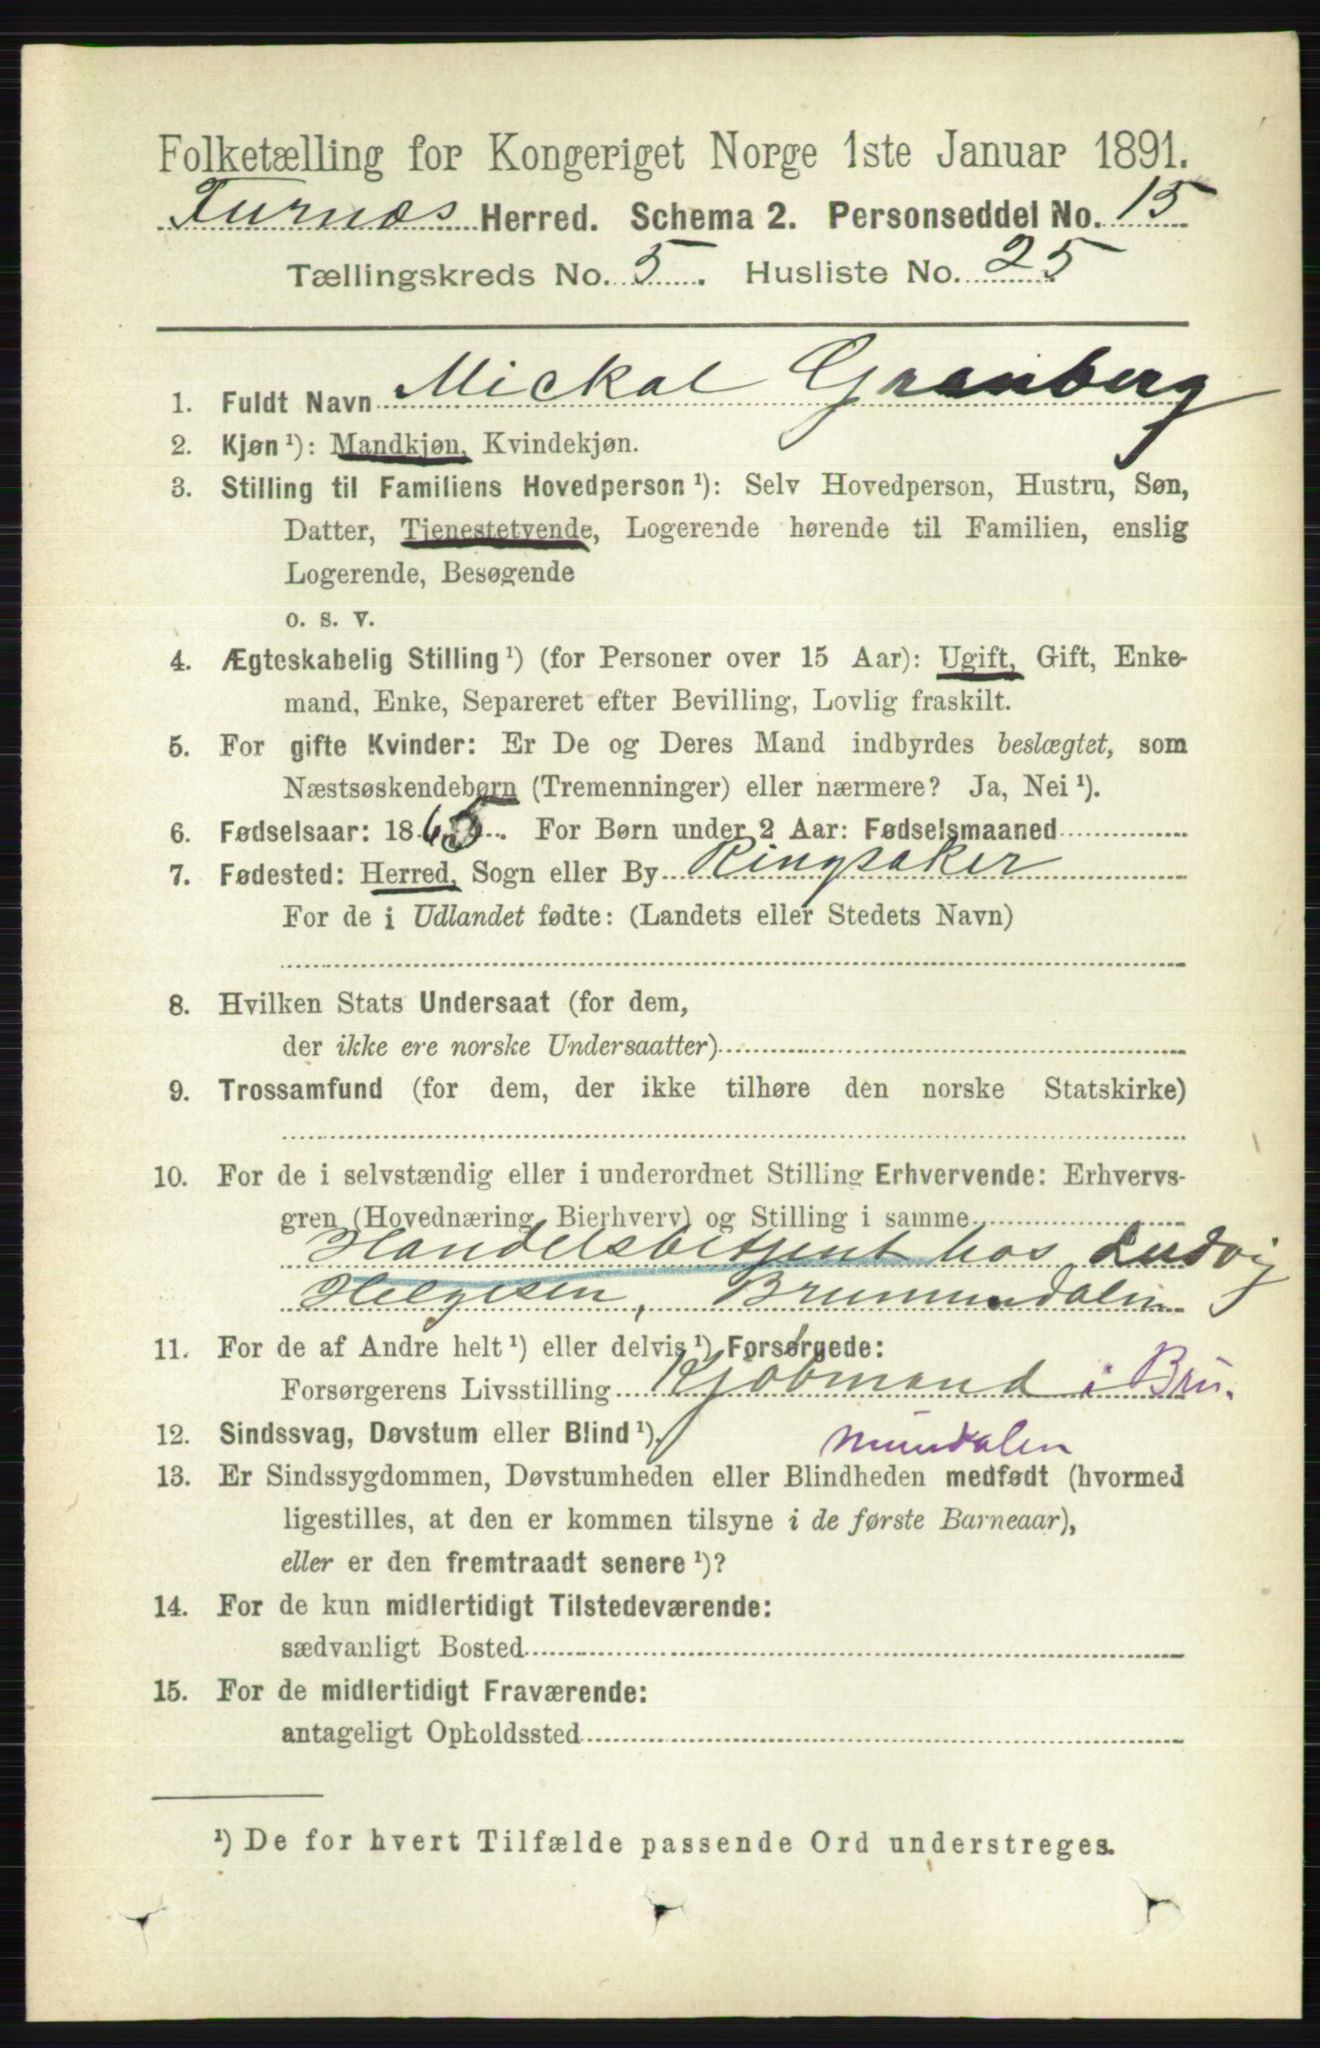 Folketælling for Kongeriget Norge 1ste Januar 1891.
Furnæs Herred. Schema 2. Personseddel No. 15
Tællingskreds No. 5. Husliste No. 25
1. Fuldt Navn Mickal Granberg
2. Kjøn¹): Mandkjøn, Kvindekjøn.
3. Stilling til Familiens Hovedperson¹): Selv Hovedperson, Hustru, Søn,
Datter, Tjenestetyende, Logerende hørende til Familien, enslig
Logerende, Besøgende
o. s. v.
4. Ægteskabelig Stilling¹) (for Personer over 15 Aar): Ugift, Gift, Enke-
mand, Enke, Separeret efter Bevilling, Lovlig fraskilt.
5. For gifte Kvinder: Er De og Deres Mand indbyrdes beslægtet, som
Næstsøskendebørn (Tremenninger) eller nærmere? Ja, Nei¹).
6. Fødselsaar: 1865. For Børn under 2 Aar: Fødselsmaaned
7. Fødested: Herred, Sogn eller By Ringsaker
For de i Udlandet fødte: (Landets eller Stedets Navn)
8. Hvilken Stats Undersaat (for dem,
der ikke ere norske Undersaatter)
9. Trossamfund (for dem, der ikke tilhøre den norske Statskirke)
10. For de i selvstændig eller i underordnet Stilling Erhvervende: Erhvervs-
gren (Hovednæring, Bierhverv) og Stilling i samme
Handelsbetjent hos Ludvig
Helgesen, Brumundalen
11. For de af Andre helt¹) eller delvis¹) Forsørgede:
Forsørgerens Livsstilling Kjøbmand i Bru-
mundalen
12. Sindssvag, Døvstum eller Blind¹),
13. Er Sindssygdommen, Døvstumheden eller Blindheden medfødt (hvormed
ligestilles, at den er kommen tilsyne i de første Barneaar),
eller er den fremtraadt senere¹)?
14. For de kun midlertidigt Tilstedeværende:
sædvanligt Bosted
15. For de midlertidigt Fraværende:
antageligt Opholdssted
¹) De for hvert Tilfælde passende Ord understreges.